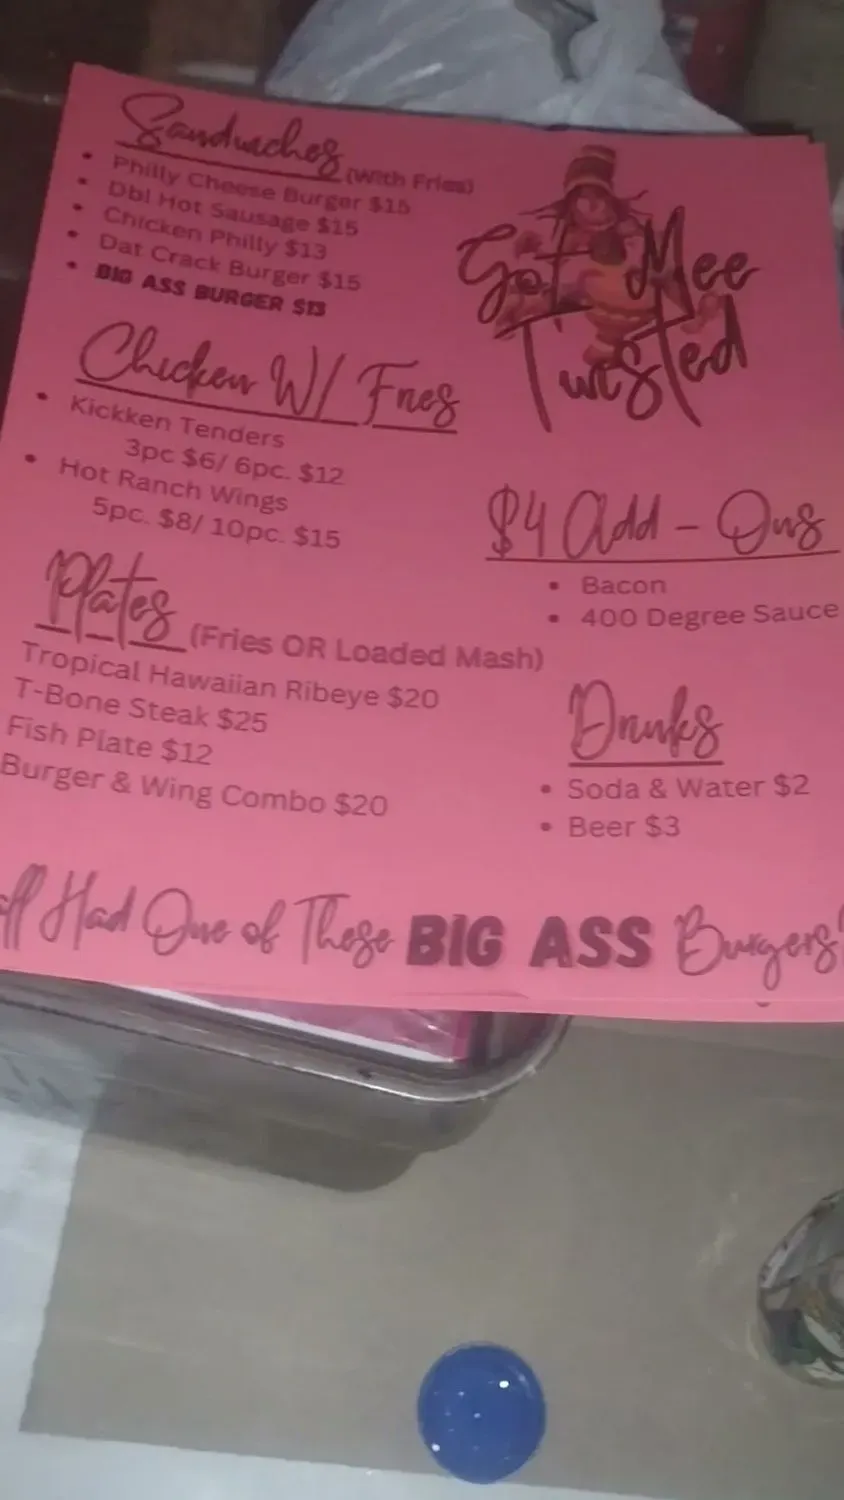 Sandwiches (With Fries)
• Philly Cheese Burger $15
• Dbl Hot Sausage $15
• Chicken Philly $13
• Dat Crack Burger $15
• BIG ASS BURGER $13
Chicken W/ Fries
• Kickken Tenders
3pc $6/ 6pc. $12
• Hot Ranch Wings
5pc. $8/ 10pc. $15
Plates (Fries OR Loaded Mash)
Tropical Hawaiian Ribeye $20
T-Bone Steak $25
Fish Plate $12
Burger & Wing Combo $20
Got Mee
Twisted
$4 Add - Ons
• Bacon
• 400 Degree Sauce
Drinks
• Soda & Water $2
• Beer $3
Had One of These BIG ASS Burgers